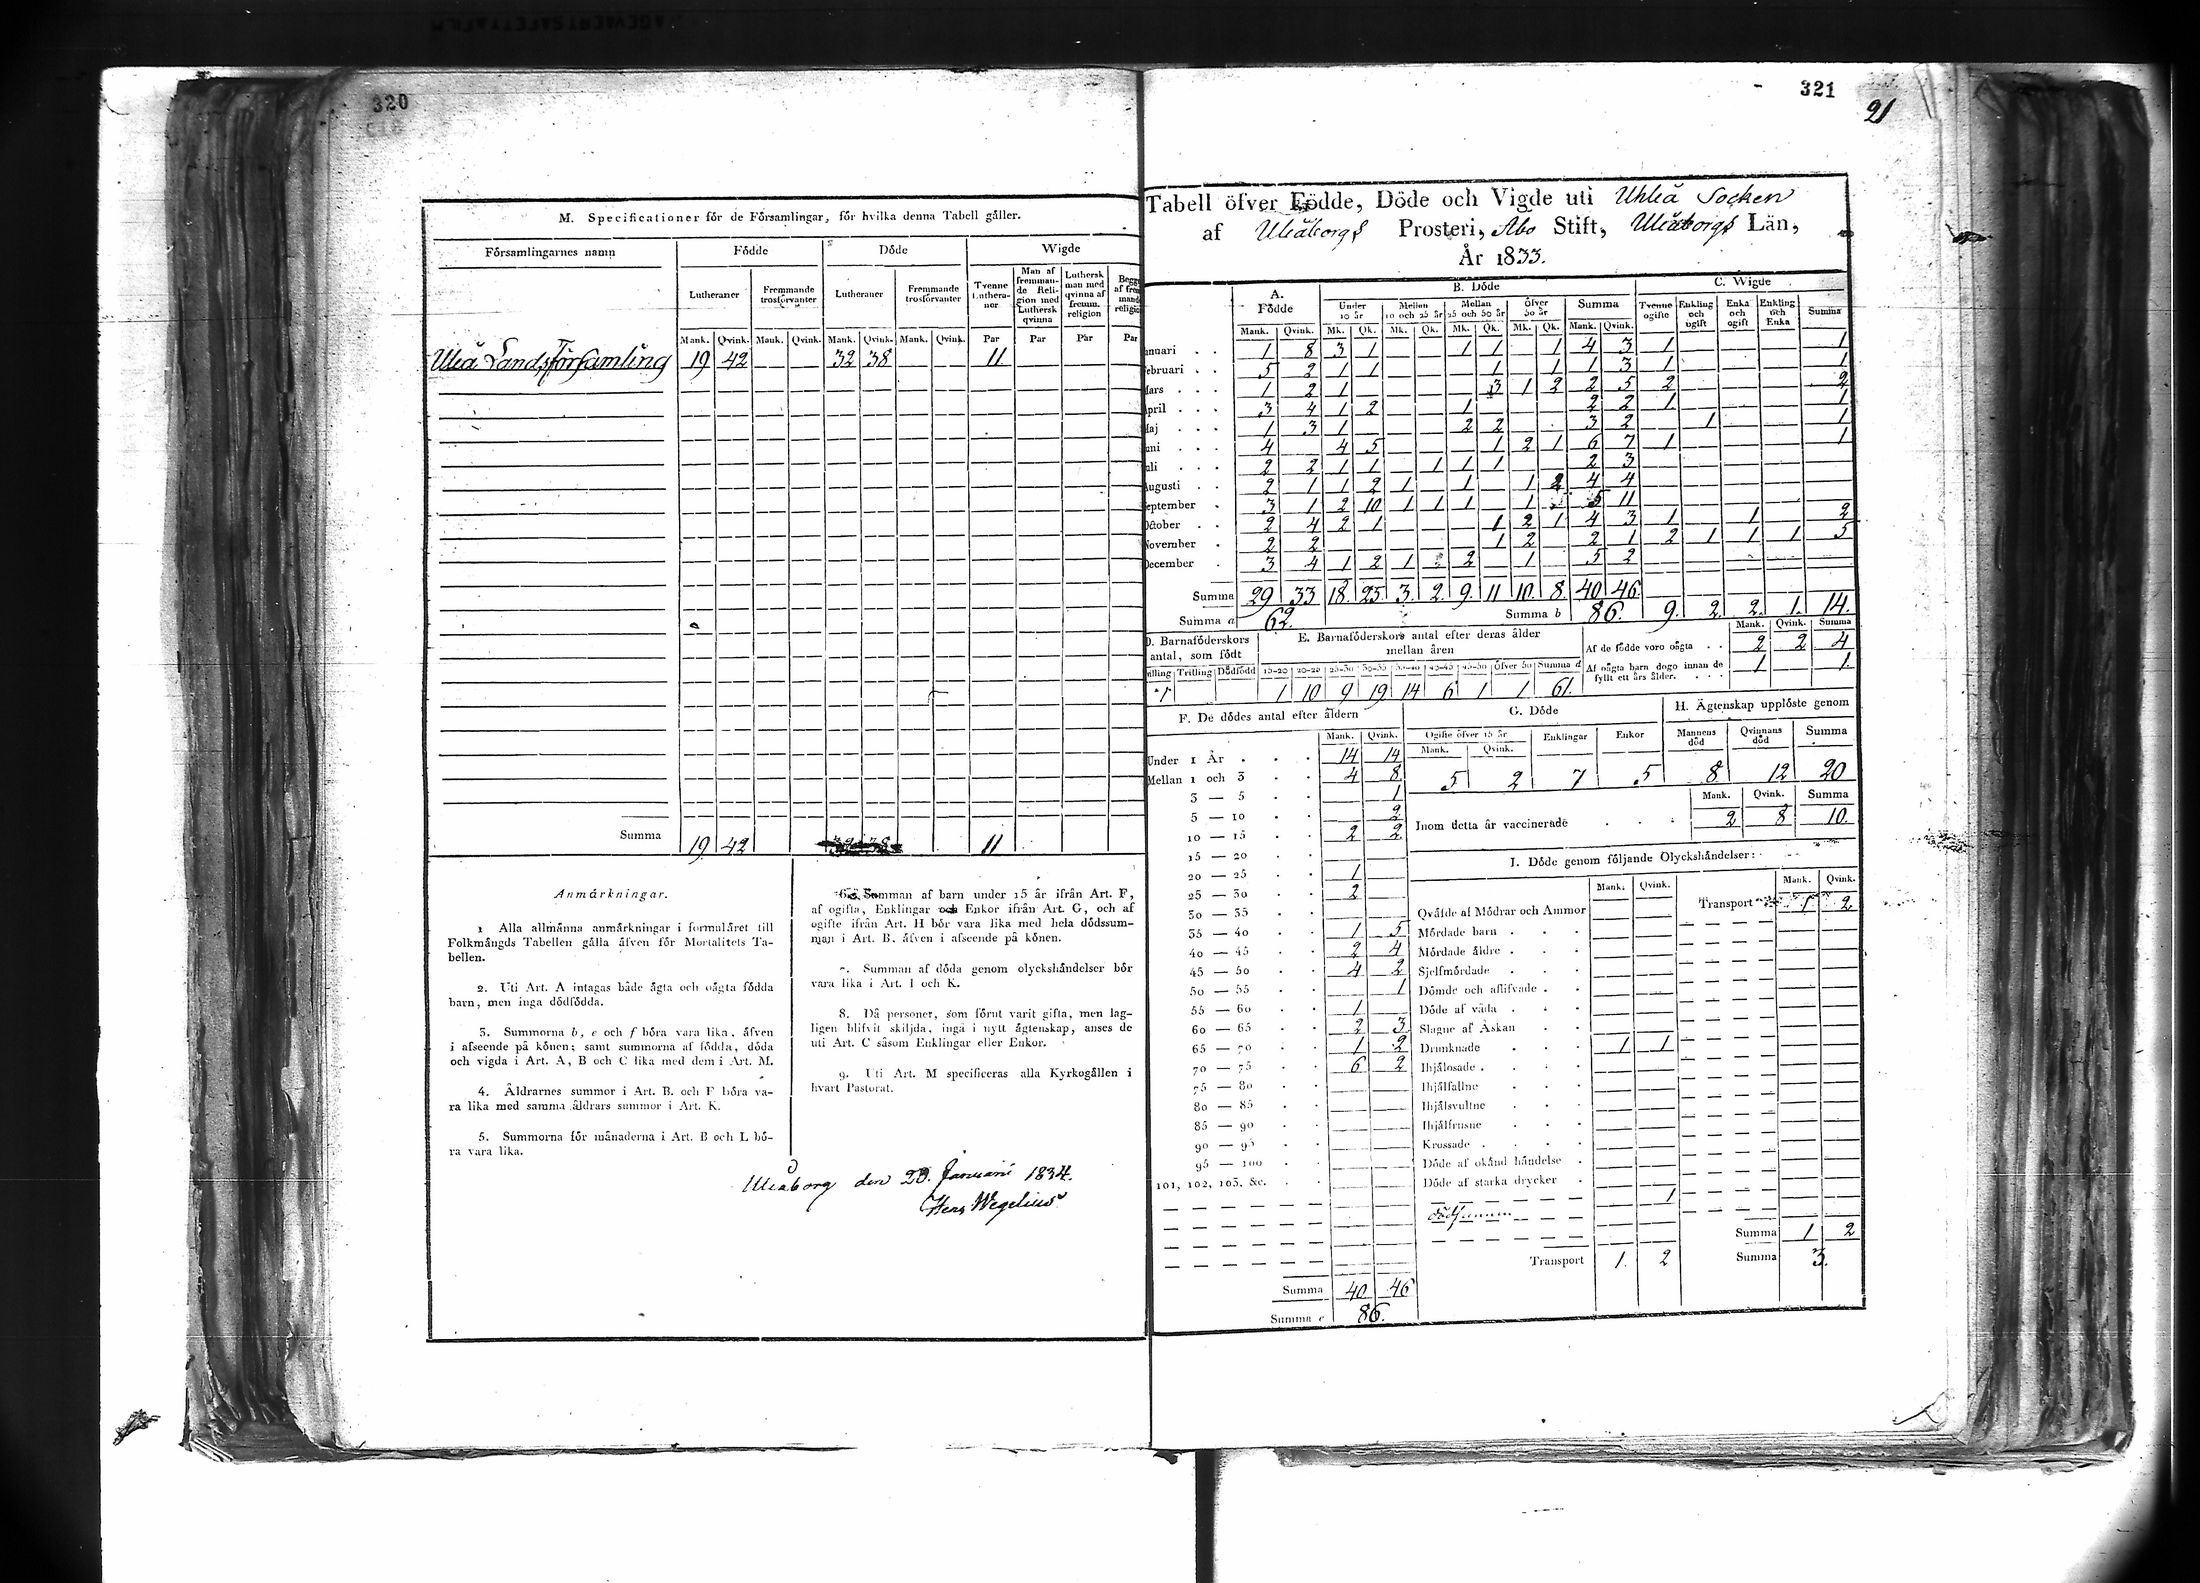 320
M. Specificationer för de Församlingar, för hvilka denna Tabell gäller.
Församlingarnes namn | Födde | Döde | Wigde
Lutheraner | Fremmande trosförvanter | Lutheraner | Fremmande trosförvanter | Tvenne Luthera-nor | Man af fremman-de Reli-gion med Luthersk qvinna | Luthersk man med qvinna af fremm. religion
Mank. Qvink. Mank. Qvink. Mank. Qvink. Mank. Qvink. Par Par Par Par
Uleå Landsförsamling 19 42 32 38 11
Summa 19 42 11
Anmärkningar.
1 Alla allmänna anmärkningar i formuläret till
Folkmängds Tabellen gälla äfven för Mortalitets Ta-
bellen.
2. Uti Art. A intagas både ägta och oägta födda
barn, men inga dödfödda.
3. Summorna b, e och f böra vara lika, äfven
i afseende på könen; samt summorna af födda, döda
och vigda i Art. A, B och C lika med dem i Art. M.
4. Åldrarnes summor i Art. B. och F böra va-
ra lika med samma åldrars summor i Art. K.
5. Summorna för månaderna i Art. B och L bö-
ra vara lika.
6. Summan af barn under 15 år ifrån Art. F,
af ogifta, Enklingar och Enkor ifrån Art. G, och af
ogifte ifrån Art. H bör vara lika med hela dödssum-
man i Art. B. äfven i afseende på könen.
7. Summan af döda genom olyckshändelser bör
vara lika i Art. I och K.
8. Då personer, som förut varit gifta, men lag-
ligen blifvit skiljda, ingå i nytt ägtenskap, anses de
uti Art. C såsom Enklingar eller Enkor.
9. Uti Art. M specificeras alla Kyrkogällen i
hvart Pastorat.
Uleåborg den 20. Januarii 1834.
Wegelius
321
21
Tabell öfver Födde, Döde och Vigde uti Uhleå Socken
af Uleåborgs Prosteri, Åbo Stift, Uleåborgs Län,
År 1833.
A. Födde | B. Döde | C. Wigde
Under 10 år | Mellan 10 och 25 år | Mellan 25 och 50 år | Öfver 50 år | Summa | Tvenne ogifte | Enkling och ogift | Enka och ogift | Enkling och Enka | Summa
Mank. Qvink. Mk. Qk. Mk. Qk. Mk. Qk. Mk. Qk. Mank. Qvink.
anuari 1 8 3 1 1 1 1 4 3 1 1
ebruari 5 2 1 1 1 1 1 3 1 1
Mars 1 2 1 3 1 2 2 5 2 2
April 3 4 1 2 1 2 2 1 1
Maj 1 3 1 2 2 3 2 1 1
uni 4 4 5 1 2 1 6 7 1 1
uli 2 2 1 1 1 1 1 2 3
Augusti 2 1 1 2 1 1 1 2 4 4
September 3 1 2 10 1 1 1 1 5 11
October 2 4 2 1 1 2 1 4 3 1 1 2
November 2 2 1 2 2 1 2 1 1 1 5
December 3 4 1 2 1 2 1 5 2
Summa 29 33 18. 25. 3. 2. 9. 11 10. 8. 40 46
Summa a 62. Summa b 86. 9. 2. 2. 1. 14.
D. Barnaföderskors antal, som födt
illing Trilling Dödfödd
1
E. Barnaföderskors antal efter deras ålder mellan åren
15-20 20-25 25-30 30-35 35-40 40-45 45-50 Öfver 50 Summa d
1 10 9 19 14 6 1 1 61.
Mank. Qvink. Summa
Af de födde voro oägta 2 2 4
Af oägta barn dogo innan de
fyllt ett års ålder. 1 1.
F. De dödes antal efter åldern
Mank. Qvink.
Under 1 År 14 14
Mellan 1 och 3 4 8
3 — 5 1
5 — 10 2
10 — 15 2 2
15 — 20
20 — 25 1
25 — 30 2
30 — 35
35 — 40 1 5
40 — 45 2 4
45 — 50 4 2
50 — 55 1
55 — 60 1
60 — 65 2 3
65 — 70 1 2
70 — 75 6 2
75 — 80
80 — 85
85 — 90
90 — 95
95 — 100
101, 102, 103, &c.
Summa 40 46
Summa e 86.
G. Döde
Ogifte öfver 15 år | Enklingar | Enkor
Mank. Qvink.
5 2 7 5
H. Ägtenskap upplöste genom
Mannens död | Qvinnans död | Summa
8 12 20
Mank. Qvink. Summa
Inom detta år vaccinerade 2 8 10.
I. Döde genom följande Olyckshändelser:
Mank. Qvink. Mank. Qvink.
Qväfde af Mödrar och Ammor Transport 1 2
Mördade barn
Mördade äldre
Sjelfmördade
Dömde och aflifvade
Döde af våda
Slagne af Åskan
Drunknade 1 1
Ihjälosade
Ihjälfallne
Ihjälsvultne
Ihjälfrusne
Krossade
Döde af okänd händelse
Döde af starka drycker
dödfunnen 1
Summa 1 2
Transport 1. 2 Summa 3.